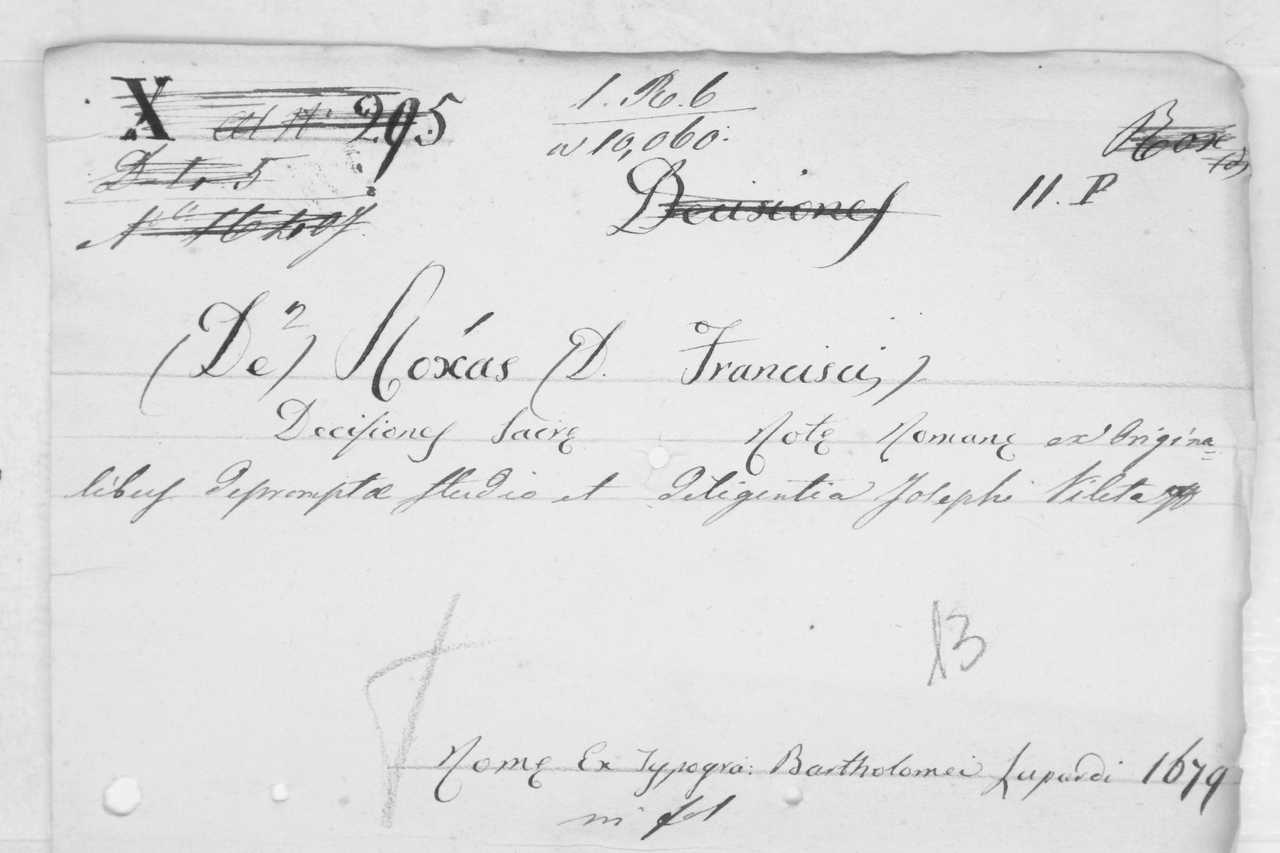 X 295
1. R. 6
a 10,060.
Decisiones
11. P
(De) Roxas (D. Francisci)
Decisiones Sacrę Rotę Romanę ex Origina=
libus depromptæ studio et diligentia Josephi Vileta
13
Romę Ex Typogra: Bartholomei Lupardi 1679
in fol